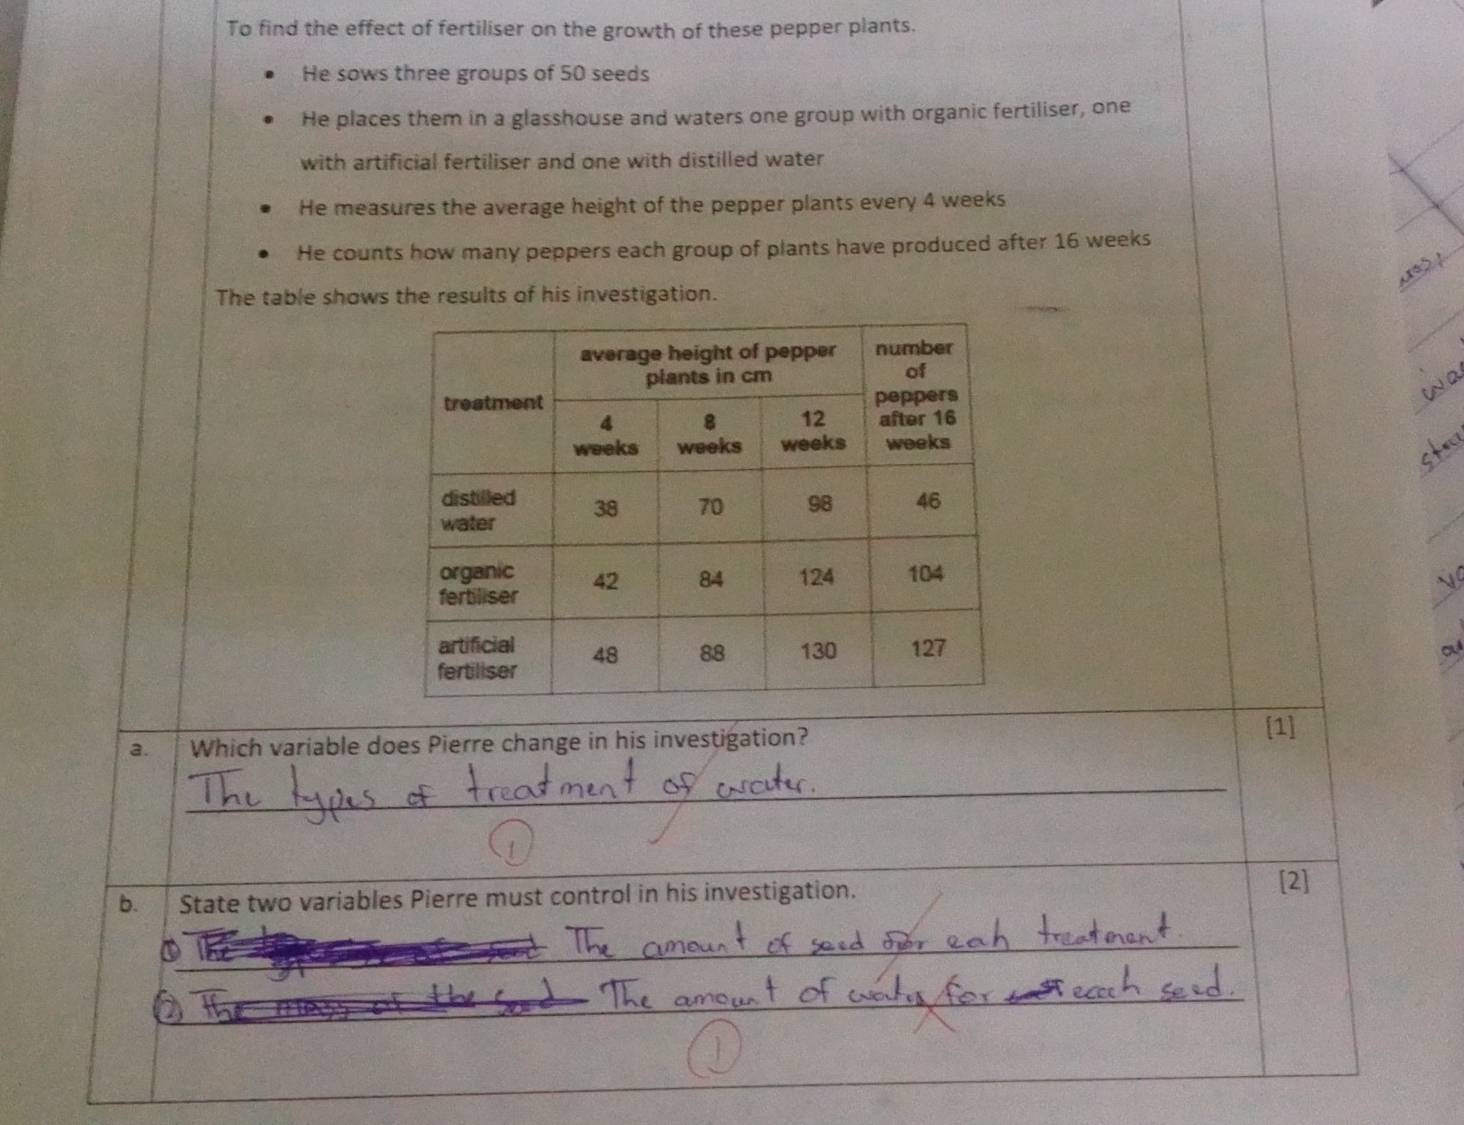 To find the effect of fertiliser on the growth of these pepper plants.
• He sows three groups of 50 seeds
• He places them in a glasshouse and waters one group with organic fertiliser, one
with artificial fertiliser and one with distilled water
• He measures the average height of the pepper plants every 4 weeks
• He counts how many peppers each group of plants have produced after 16 weeks
The table shows the results of his investigation.
treatment
average height of pepper
plants in cm
number
of
peppers
after 16
weeks
4
weeks
8
weeks
12
weeks
distilled
water
38 70 98 46
organic
fertiliser
42 84 124 104
artificial
fertiliser
48 88 130 127
a. Which variable does Pierre change in his investigation? [1]
The types of treatment of water.
1
b. State two variables Pierre must control in his investigation. [2]
① The amount of seed for eah treatment.
② The amount of water for each seed.
1